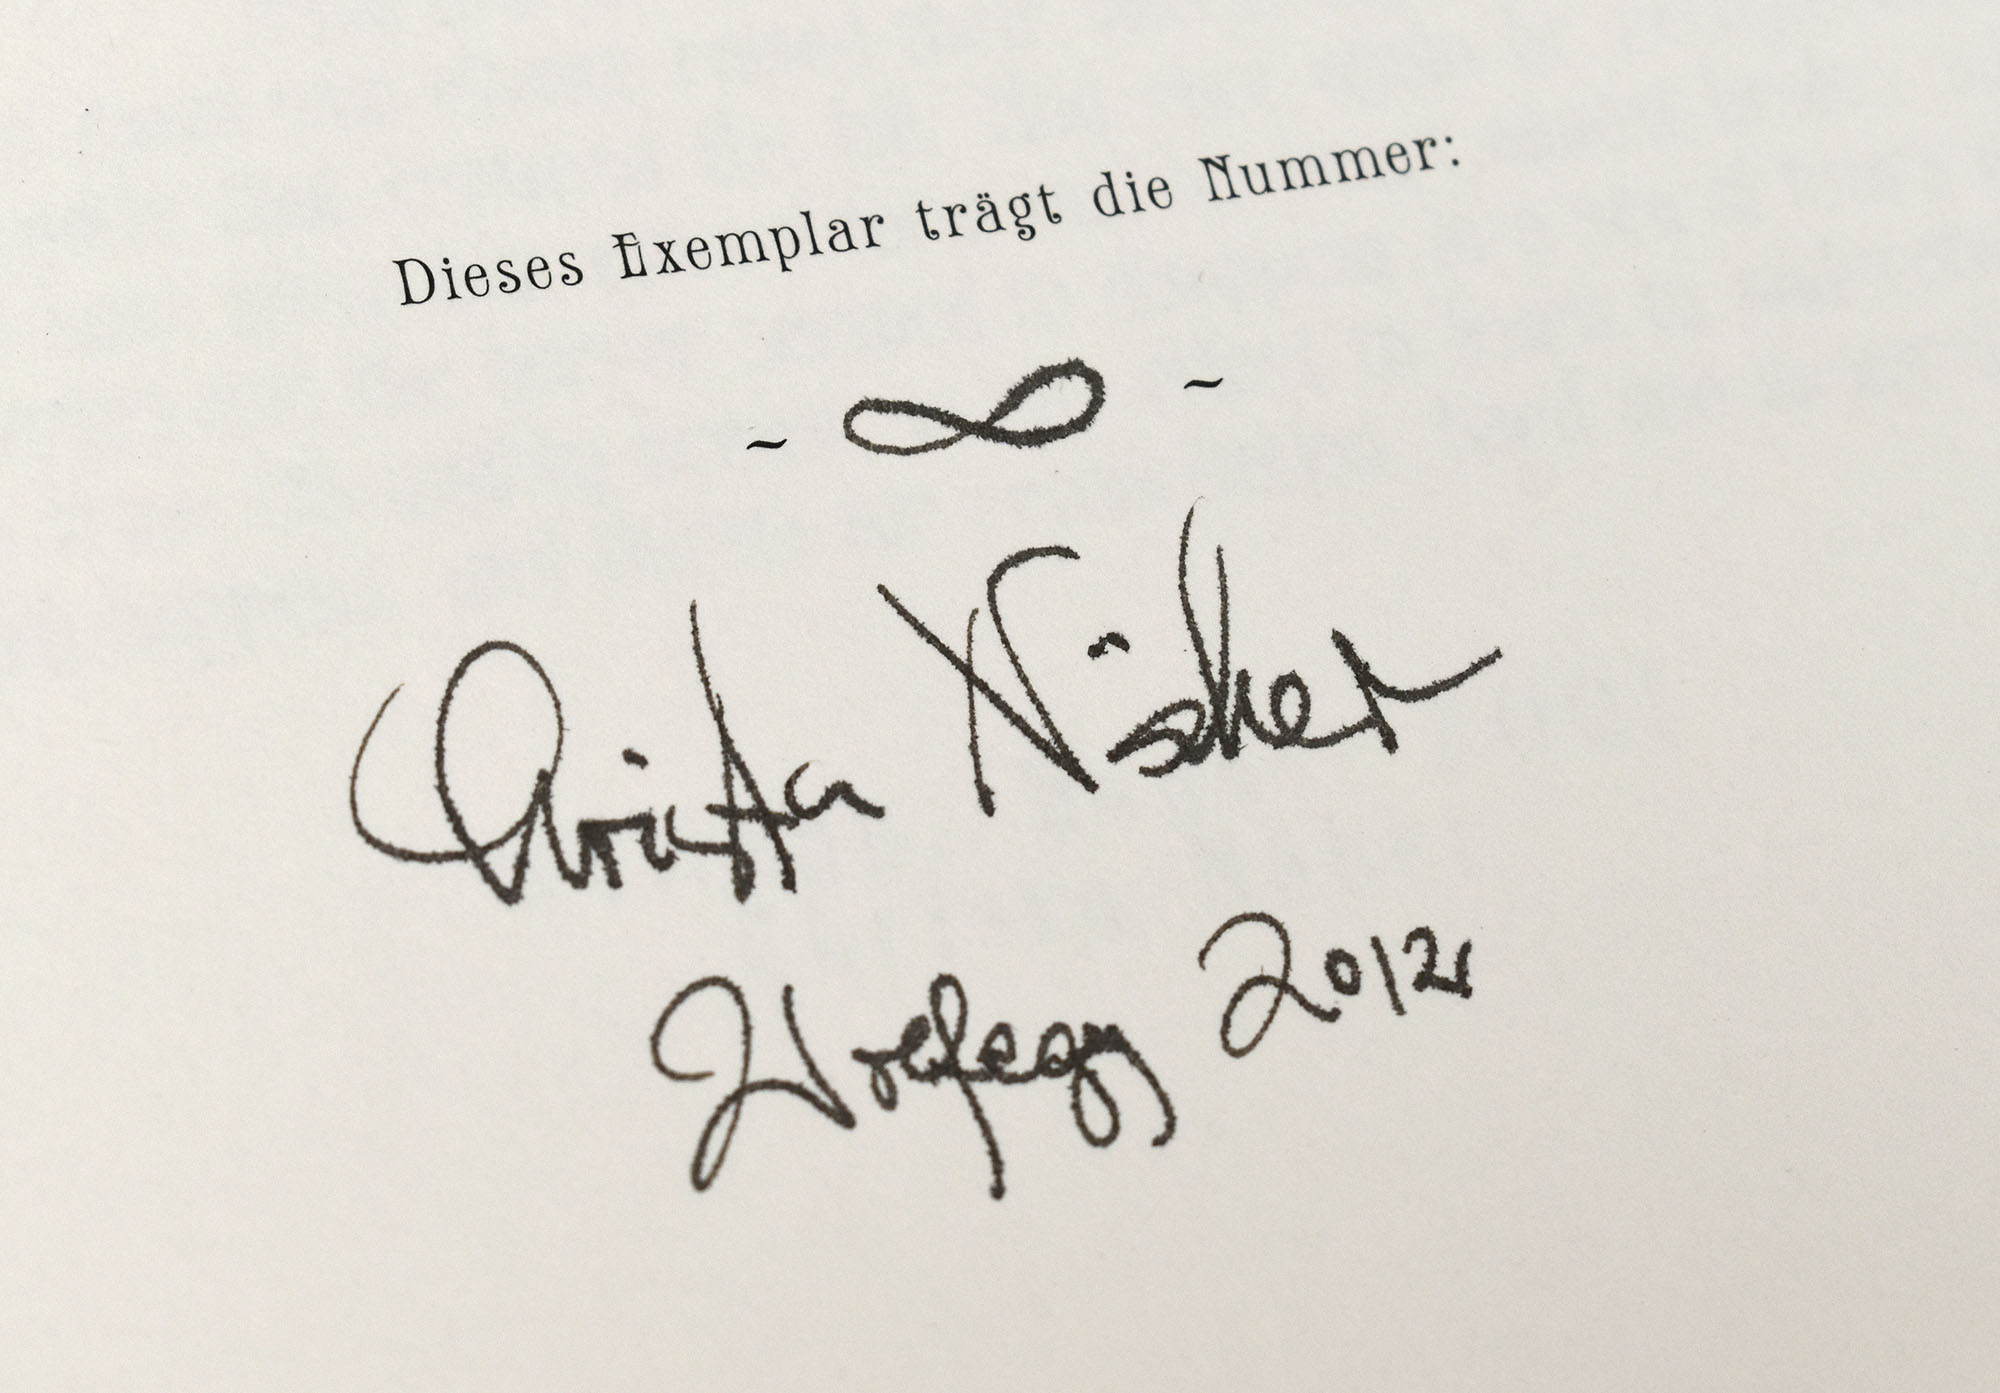 Dieses Exemplar trägt die Nummer:
~ ∞ ~
Christa
Wolfegg 2012